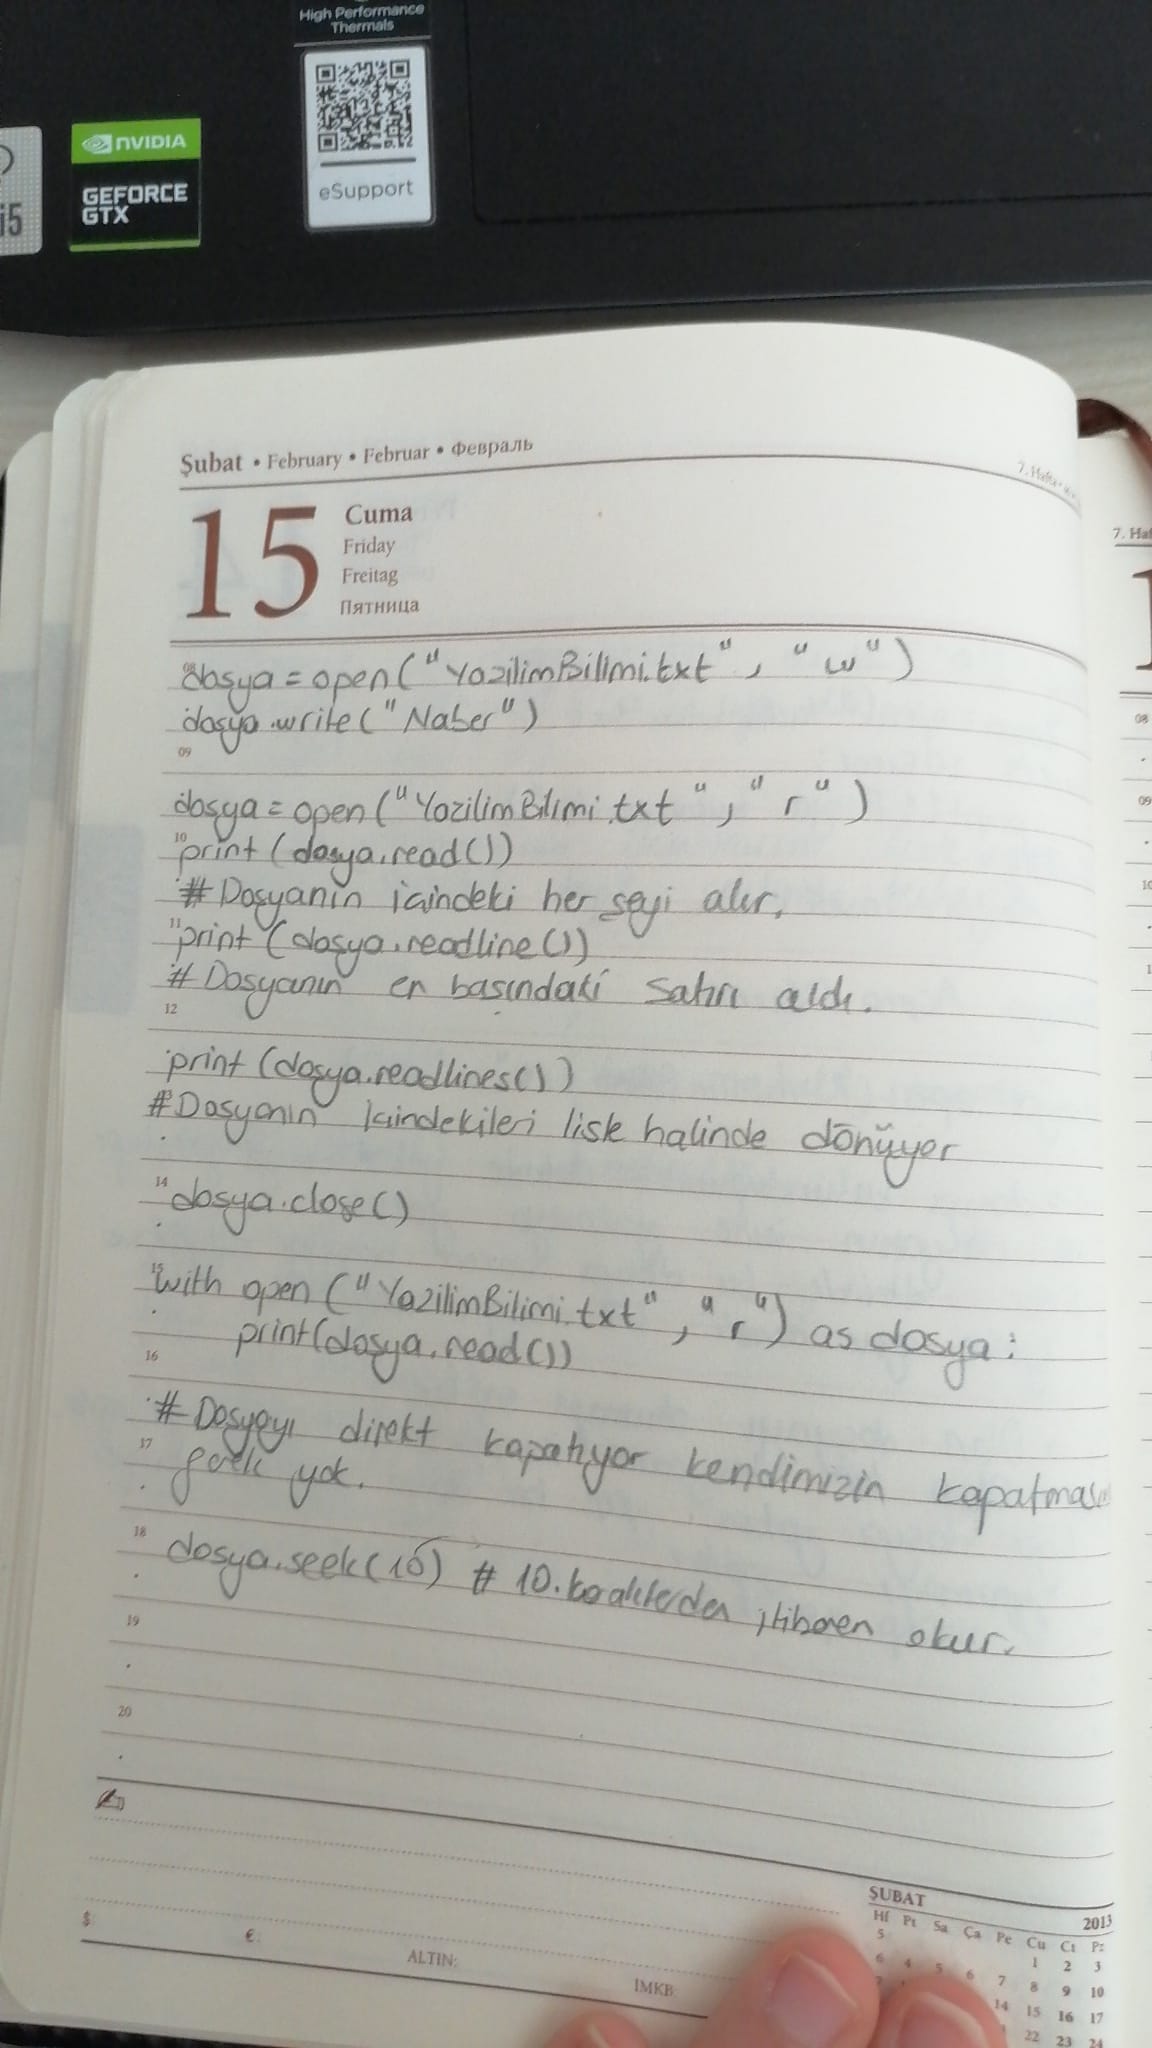 High Performance
Thermals
NVIDIA
GEFORCE
GTX
i5
eSupport
Şubat • February • Februar • Февраль
7. Hafta
15
Cuma
Friday
Freitag
Пятница
7. Haf
08
dosya = open("YazilimBilimi.txt", "w")
dosya.write("Naber")
09
dosya = open("YazilimBilimi.txt", "r")
10
print (dosya.read())
# Dosyanın içindeki her şeyi alır.
11
print (dosya.readline())
# Dosyanın en başındaki satırı aldı.
12
print (dosya.readlines())
13
# Dosyanın içindekileri liste halinde dönüyor
14
dosya.close()
15
with open ("YazilimBilimi.txt", "r") as dosya:
print(dosya.read())
16
# Dosyayı direkt kapatıyor kendimizin
17
gerek yok.
18
dosya.seek(10) # 10. itibaren okur.
19
20
ŞUBAT 2013
Hf Pt Sa Ça Pe Cu Ct Pz
5 1 2 3
6 4 5 6 7 8 9 10
14 15 16 17
22 23 24
$:
€:
ALTIN:
IMKB:
08
09
10